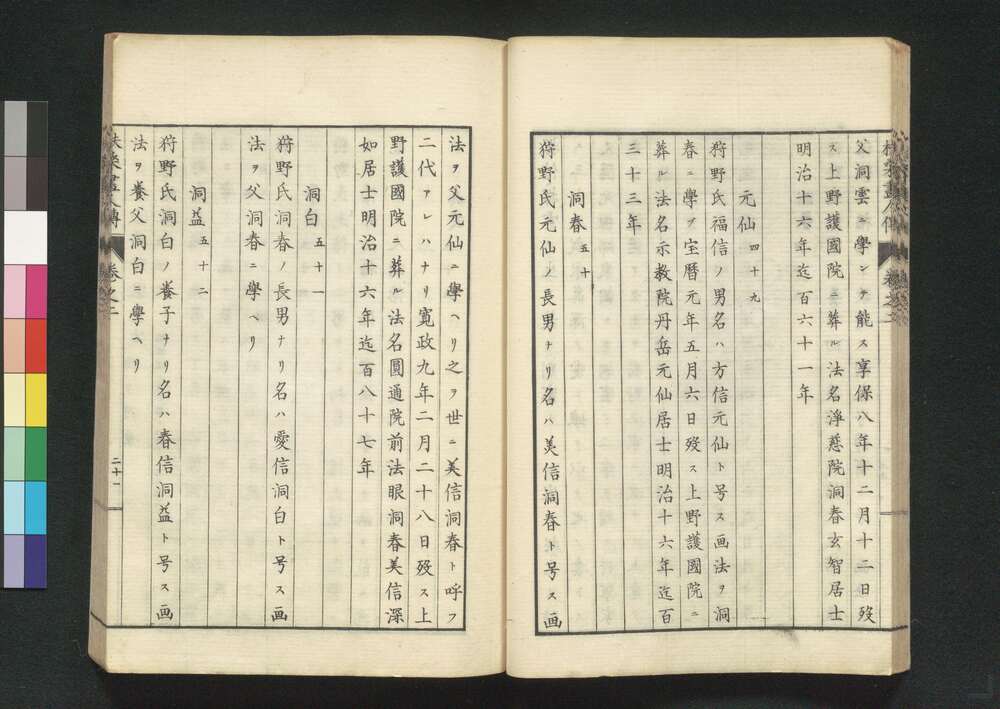 父洞雲ニ學ンテ能ス享保八年十二月十二日歿
ス上野護國院ニ葬ル法名淨慈院洞春玄智居士
明治十六年迄百六十一年
元仙 四十九
狩野氏福信ノ男名ハ方信元仙ト号ス画法ヲ洞
春ニ學フ宝暦元年五月六日歿ス上野護國院ニ
葬ル法名示教院丹岳元仙居士明治十六年迄百
三十三年
洞春 五十
狩野氏元仙ノ長男ナリ名ハ美信洞春ト号ス画
法ヲ父元仙ニ學ヘリ之ヲ世ニ美信洞春ト呼フ
二代アレハナリ寛政九年二月二十八日歿ス上
野護國院ニ葬ル法名圓通院前法眼洞春美信深
如居士明治十六年迄百八十七年
洞白 五十一
狩野氏洞春ノ長男ナリ名ハ愛信洞白ト号ス画
法ヲ父洞春ニ學ヘリ
洞益 五十二
狩野氏洞白ノ養子ナリ名ハ春信洞益ト号ス画
法ヲ養父洞白ニ學ヘリ
扶桑畫人傳 卷之二 二十一